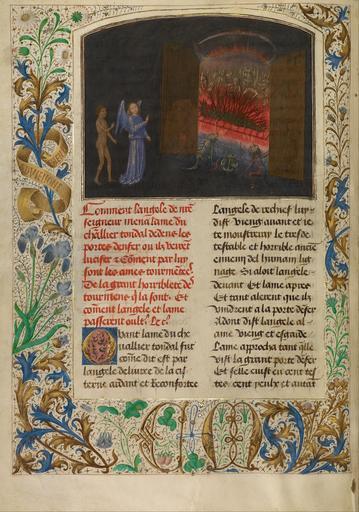 Comment langele de nre
seigneur mena lame du
chllier tondal dedens les
portes denfer ou ilz virent
lucifer & Coment par luy
sont les ames tourmetees
De la grant horriblete des
tourmens q la sont Et
coment langele et lame
passerent oultre
Quant lame du che
uallier tondal fut
come dit est par
langele deliuree de la cis
terne ardant et Reconfortee
Langele de rechief luy
dist Vieng auant et ie
te monstreray le tresde
testable et horrible ancie
ennemy del humain lig
nage Si aloit langele
deuant Et lame apres
Et tant alerent que ilz
vindrent a la porte denfer
Adont dist langele al
ame Vieng et esgarde
Lame aprocha tant qlle
vist la grant porte denfer
Et selle eust eu cent tes
tes cent yeulx et autant